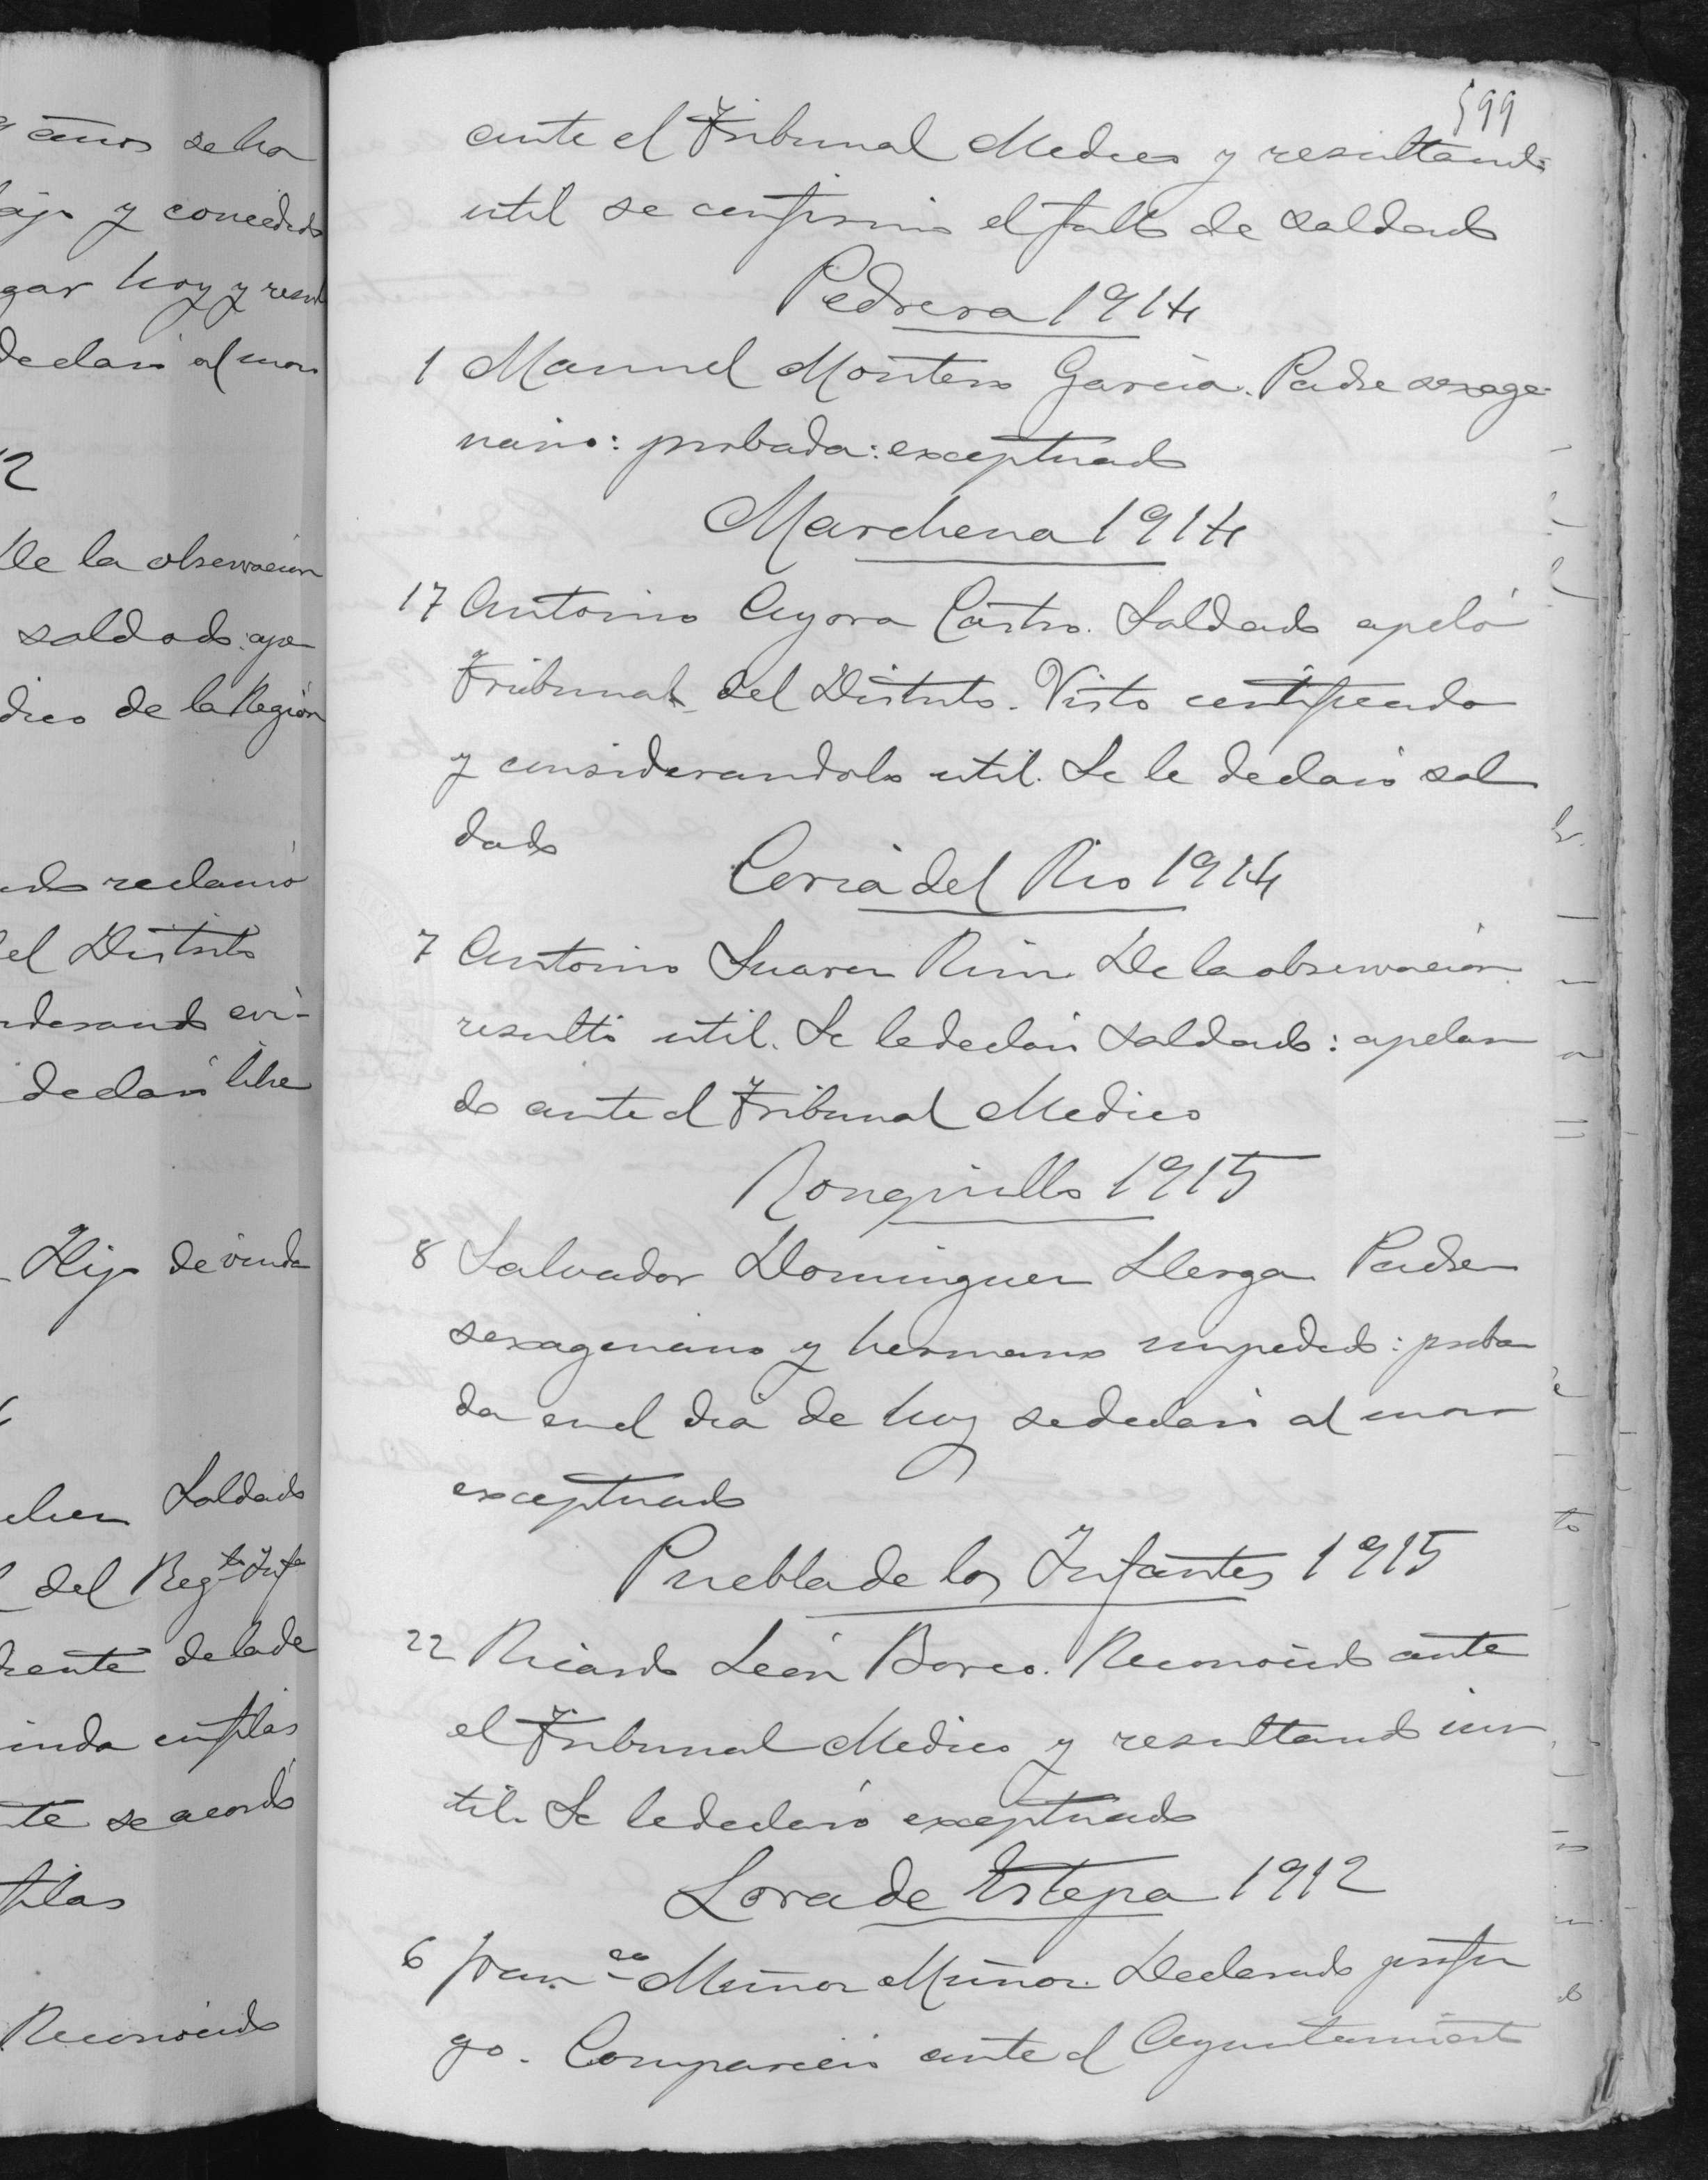 años se ha
y concedido
gar hoy y resul
declaró al mozo
12
De la observación
soldado: ape
dico de la Región
do reclamó
el Distrito
derando evi-
declaró libre
Hijo de viuda
Soldado
del Regto Infa
de la de
en filas
te se acordó
filas
Reconocido
599
ante el Tribunal Medico y resultando
util se confirmó el fallo de soldado
Pedrera 1914
1 Manuel Montero Garcia. Padre sexage-
nario: probada: exceptuado
Marchena 1914
17 Antonio Ayora Castro. Soldado apeló
Tribunal del Distrito. Visto certificado
y considerandolo util. Se le declaró sol
dado
Coria del Rio 1914
7 Antonio Suarez De la observación
resultó util. Se le declaró soldado: apelan
do ante el Tribunal Medico
Ronquillo 1915
8 Salvador Dominguez Padre
sexagenario y hermano impedido: proba
da en el dia de hoy se declaró al mozo
exceptuado
Puebla de los Infantes 1915
22 Ricardo León Reconocido ante
el Tribunal Medico y resultando inu
til. Se le declaró exceptuado
Lora de Estepa 1912
6 Franco Muñoz Muñoz. Declarado prófu
go. Compareció ante el Ayuntamiento